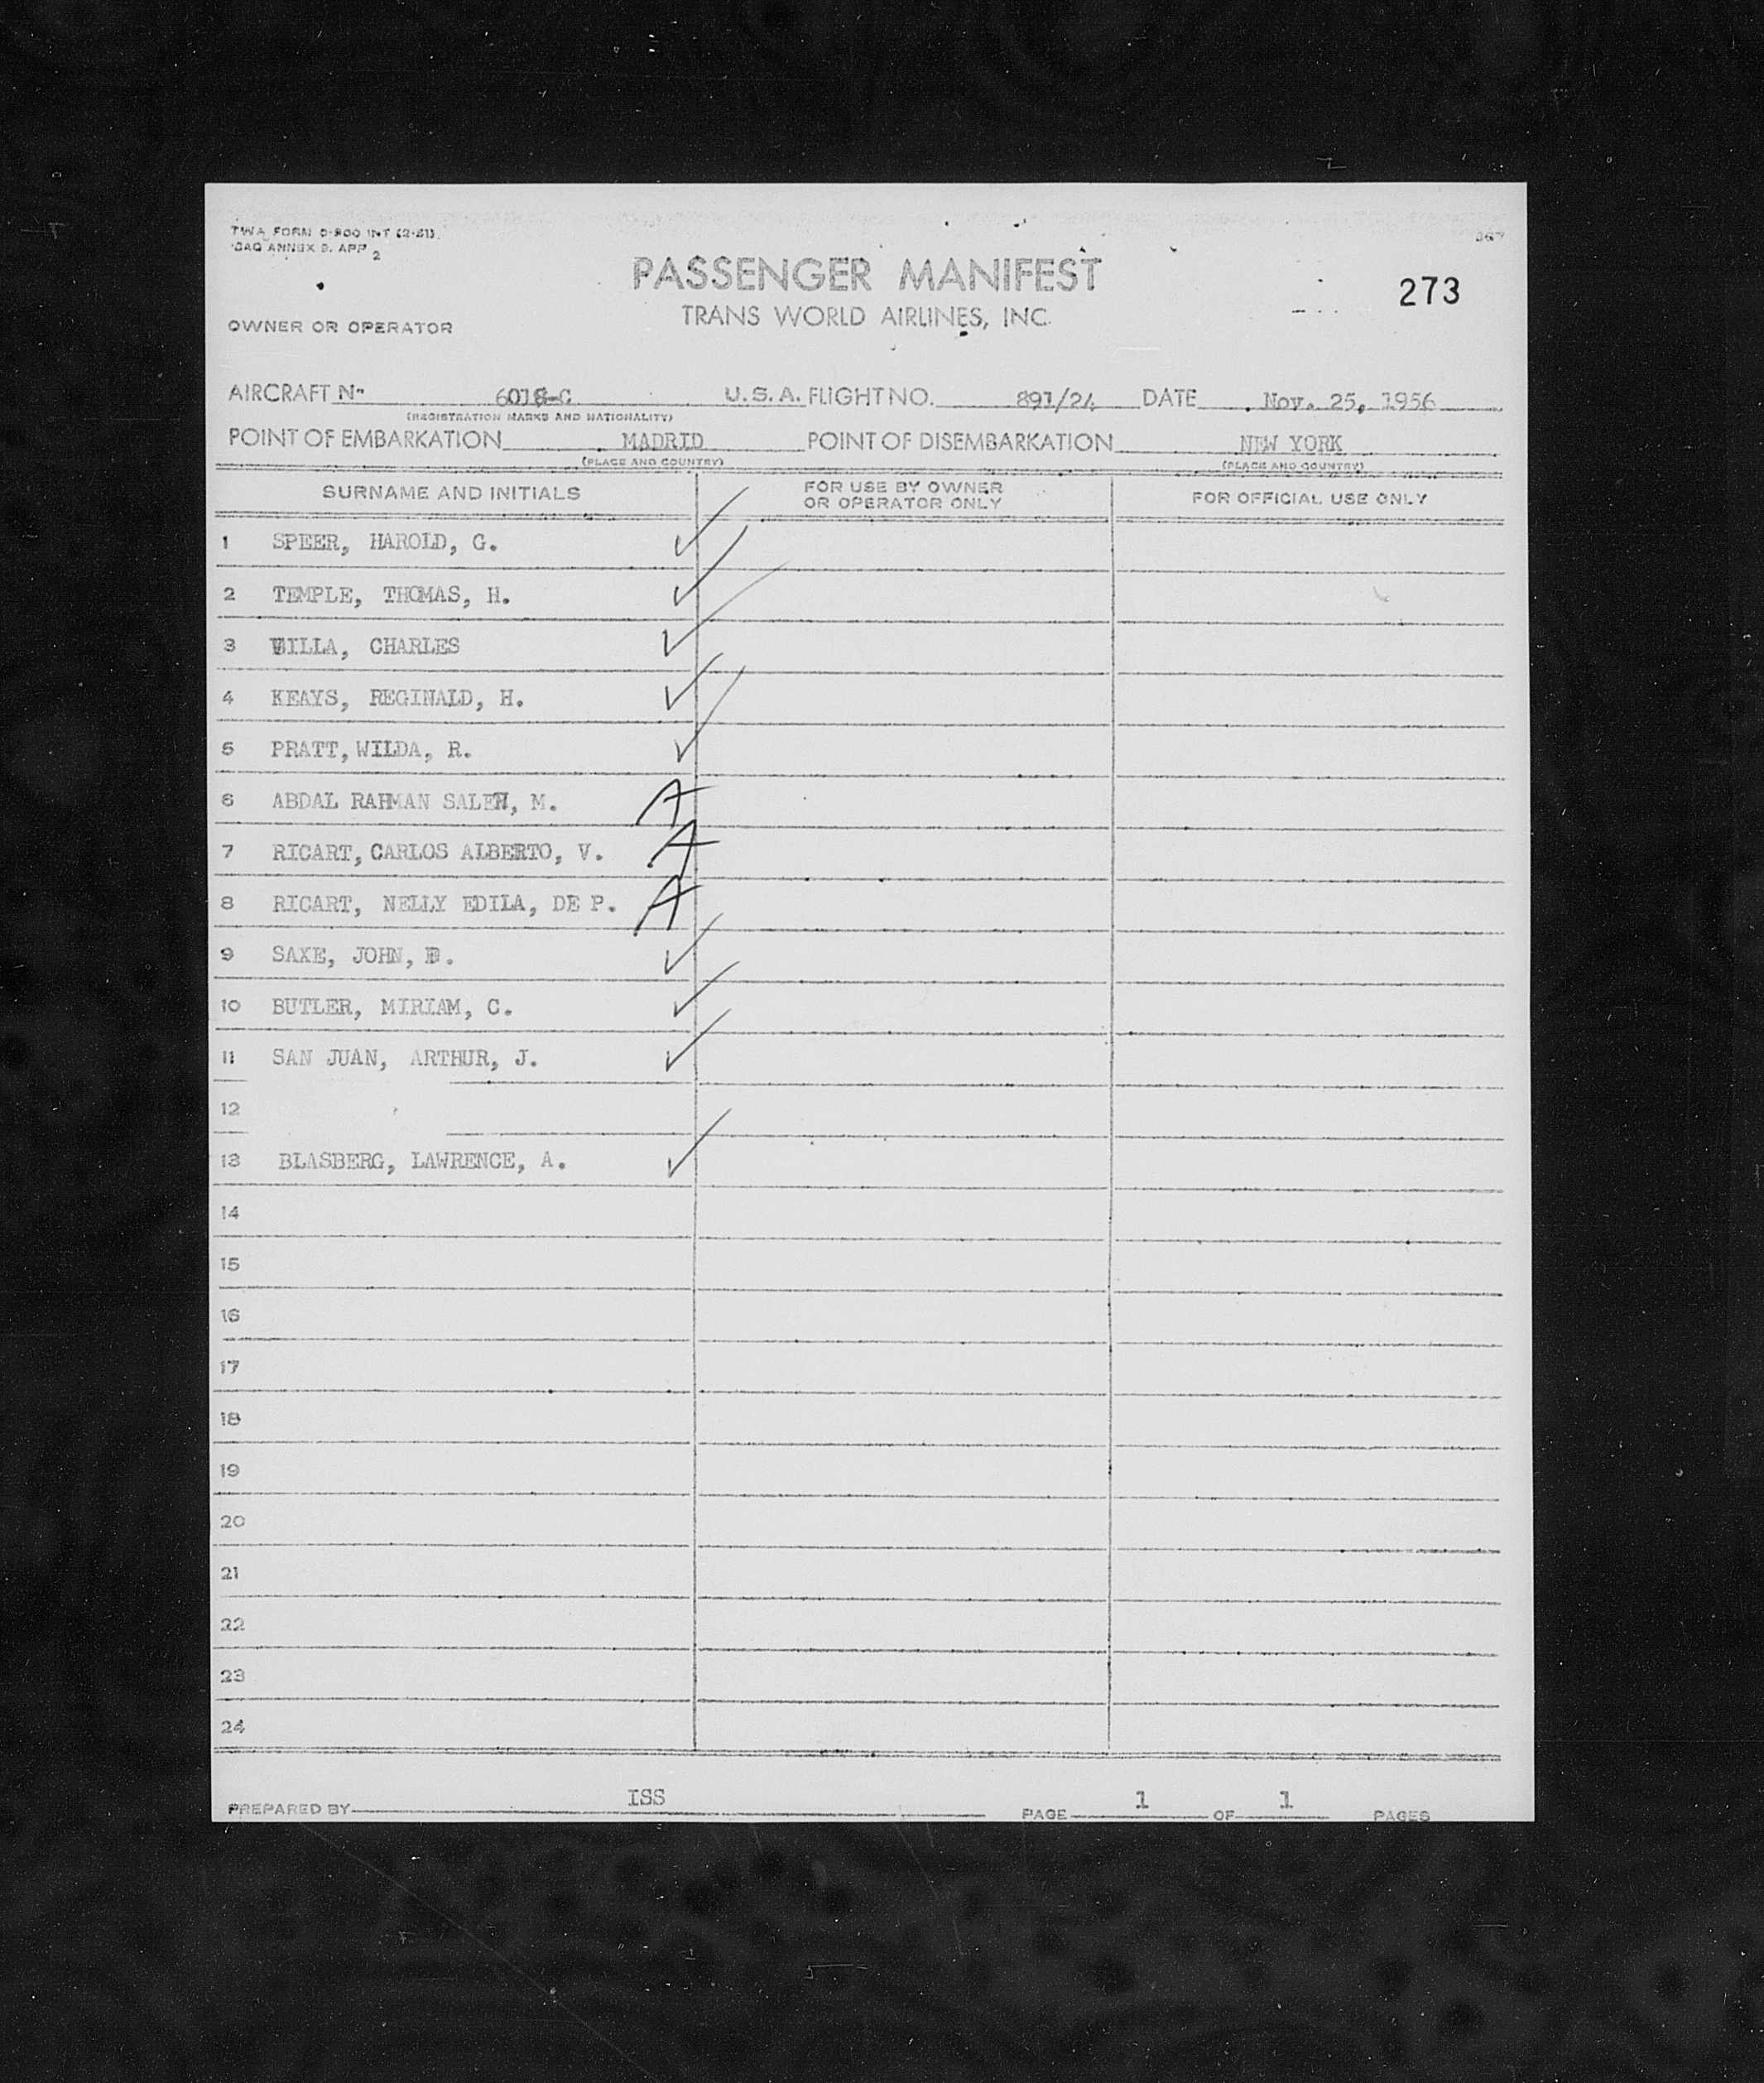 TWA FORM O-900 INT (2-51)
ICAO ANNEX 9. APP 2
273
PASSENGER MANIFEST
TRANS WORLD AIRLINES, INC.
OWNER OR OPERATOR
AIRCRAFT Nº 6018-C U.S.A. FLIGHT NO. 891/24 DATE Nov. 25, 1956
(REGISTRATION MARKS AND NATIONALITY)
POINT OF EMBARKATION MADRID POINT OF DISEMBARKATION NEW YORK
(PLACE AND COUNTRY) (PLACE AND COUNTRY)
SURNAME AND INITIALS FOR USE BY OWNER OR OPERATOR ONLY FOR OFFICIAL USE ONLY
1 SPEER, HAROLD, G. ✓
2 TEMPLE, THOMAS, H. ✓
3 VILLA, CHARLES ✓
4 KEAYS, REGINALD, H. ✓
5 PRATT, WILDA, R. ✓
6 ABDAL RAHMAN SALEH, M. A
7 RICART, CARLOS ALBERTO, V. A
8 RICART, NELLY EDILA, DE P. A
9 SAXE, JOHN, ✓
10 BUTLER, MIRIAM, C. ✓
11 SAN JUAN, ARTHUR, J. ✓
12
13 BLASBERG, LAWRENCE, A. ✓
14
15
16
17
18
19
20
21
22
23
24
PREPARED BY ISS PAGE 1 OF 1 PAGES